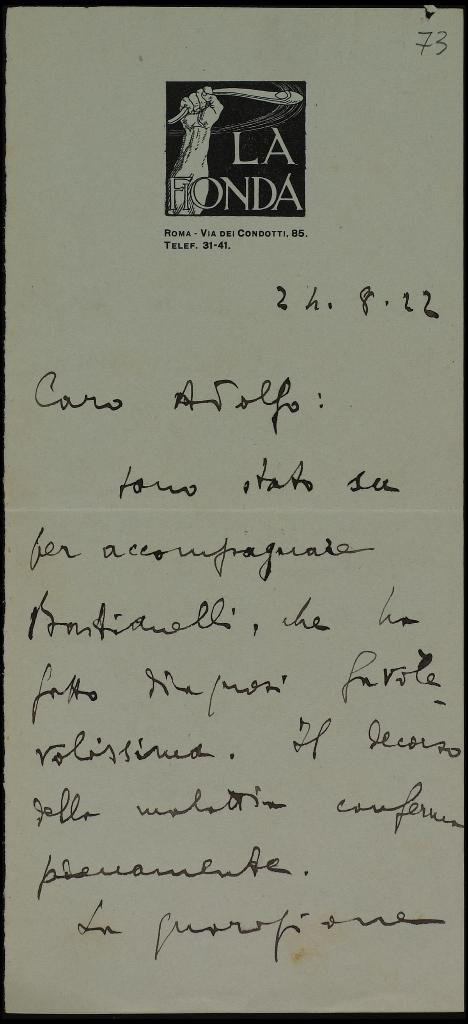 73
LA
FIONDA
ROMA - VIA DEI CONDOTTI, 85.
TELEF. 31-41.
24.8.22
Caro Adolfo:
sono stato su
per accompagnare
Bastianelli, che ha
fatto diagnosi favole-
volissima. Il decorso
della malattia conferma
pienamente.
La guarigione